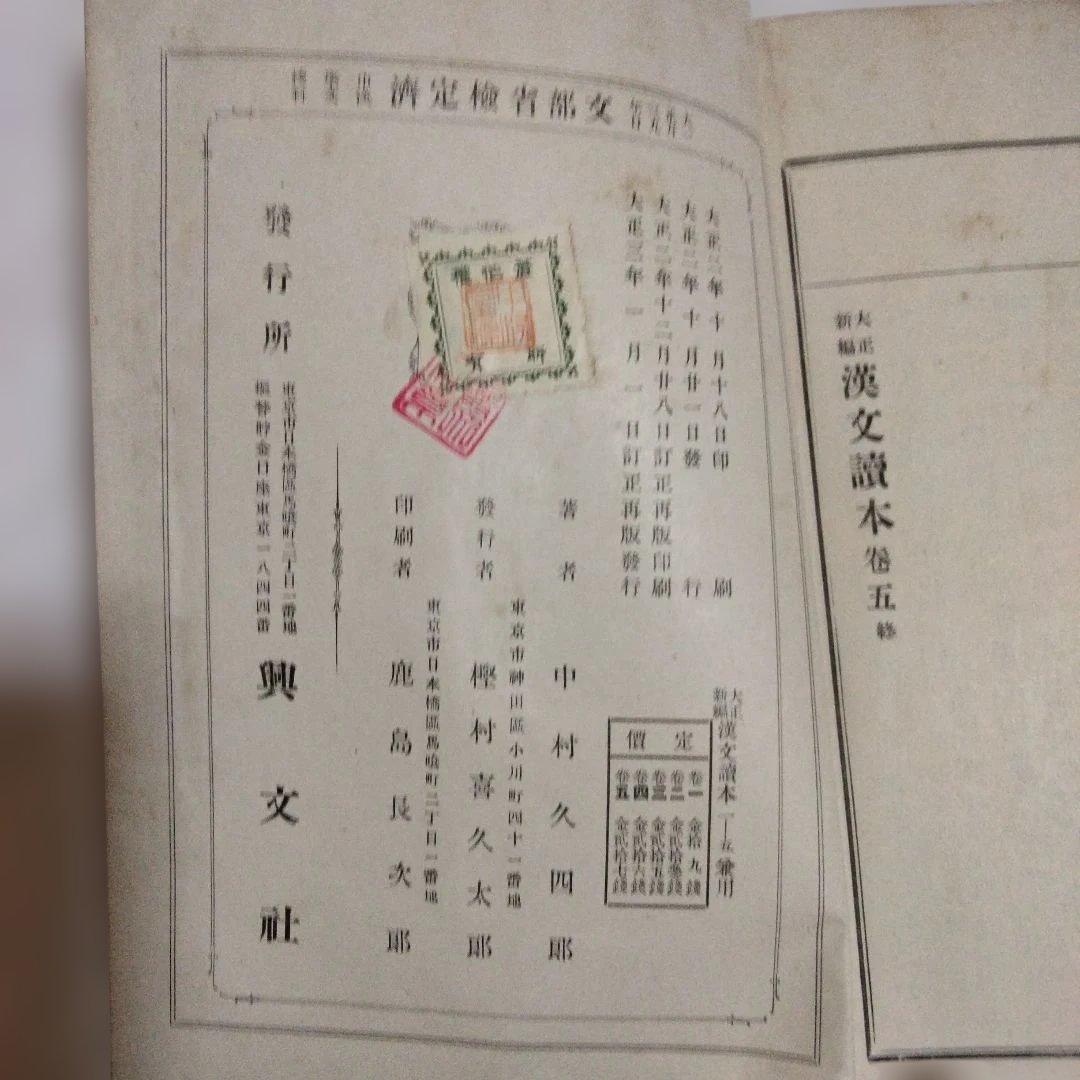 大正
新編
漢文讀本卷五終
文部省檢定濟
大正三年十月十八日印刷
大正三年十月廿一日發行
大正三年十二月廿八日訂正再版印刷
大正三年一月一日訂正再版發行
大正
新編
漢文讀本一—五兼用
定價
卷一 金拾九錢
卷二 金貳拾參錢
卷三 金貳拾五錢
卷四 金貳拾六錢
卷五 金貳拾七錢
著者 中村久四郞
東京市神田區小川町四十一番地
發行者 樫村喜久太郞
東京市日本橋區馬喰町二丁目一番地
印刷者 鹿島長次郞
東京市日本橋區馬喰町二丁目一番地
振替貯金口座東京一八四四番
發行所 興文社